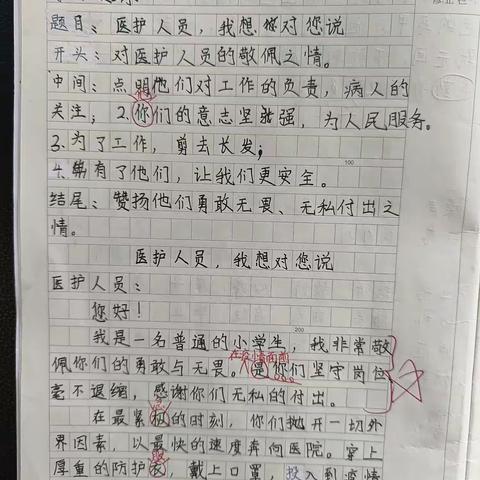 题目：医护人员，我想您对您说
开头：对医护人员的敬佩之情。
中间：点明他们对工作的负责，病人的
关注；2.你们的意志坚强，为人民服务。
3.为了工作，剪去长发；
4.有了他们，让我们更安全。
100
结尾：赞扬他们勇敢无畏、无私付出之
情。
医护人员，我想对您说
医护人员：
您好！
200
我是一名普通的小学生，我非常敬
佩你们的勇敢与无畏。是你们坚守岗位
毫不退缩，感谢你们无私的付出。
在最紧的时刻，你们抛开一切外
界因素，以最快的速度奔向医院。穿上
厚重的防护衣，戴上口罩，投入到疫情